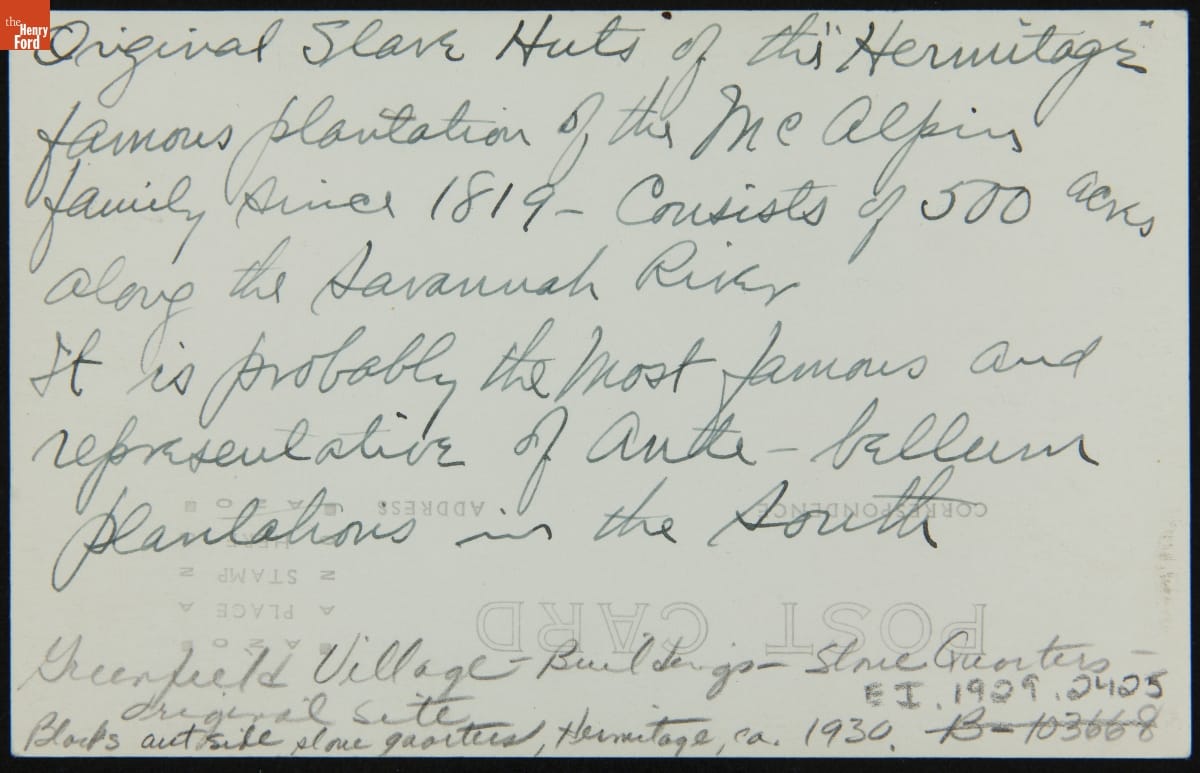 the Henry Ford
Original Slave Huts of the "Hermitage"
famous plantation of the McAlpin
family since 1819 - Consists of 500 acres
along the Savannah River
It is probably the most famous and
representative of Ante-bellum
plantations in the South
CORRESPONDENCE ADDRESS
AZO
PLACE
STAMP
HERE
AZO
POST CARD
Greenfield Village - Buildings - Slave Quarters -
EI.1929.2425
Original Site
Blacks outside slave quarters, Hermitage, ca. 1930. B-103668